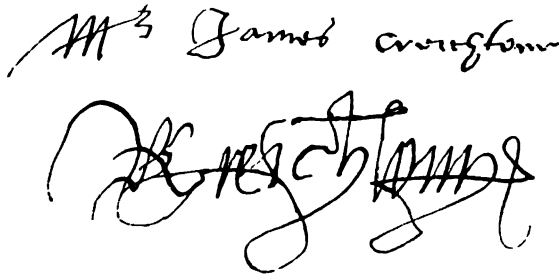 Mr James Creichtoun
Creichtoune